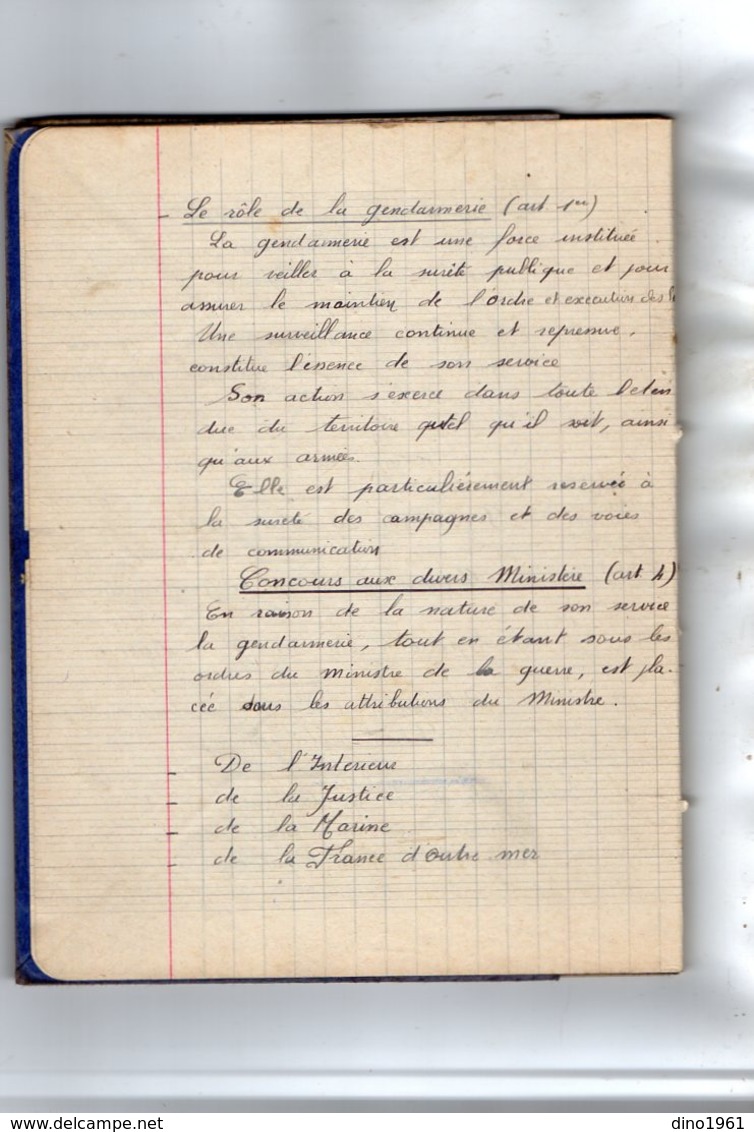 - Le rôle de la gendarmerie (art 1er)
La gendarmerie est une force instituée
pour veiller à la sureté publique et pour
assurer le maintien de l'ordre et execution des l
Une surveillance continue et repressive,
constitue l'éssence de son service
Son action s'éxerce dans toute l'eten
due du territoire qutel qu'il soit, ainsi
qu'aux armées.
Elle est particuliérement reservée à
la sureté des campagnes et des voies
de communication
Concours aux divers Ministére (art 4)
En raison de la nature de son service
la gendarmerie, tout en étant sous les
ordres du ministre de la guerre, est pla-
cée dans les attributions du Ministre.
- De l'Interieur
- de la Justice
- de la Marine
- de la France d'outre mer
delcampe.net
dino1961